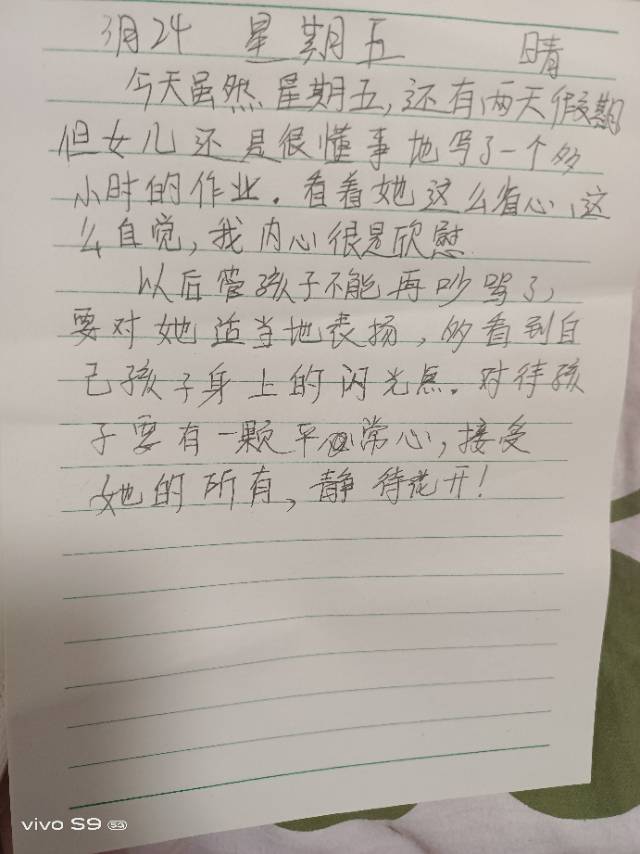 3月24 星期五 晴
今天虽然星期五,还有两天假期
但女儿还是很懂事地写了一个多
小时的作业。看着她这么省心,这
么自觉,我内心很是欣慰
以后管孩子不能再吵骂了,
要对她适当地表扬,多看到自
己孩子身上的闪光点。对待孩
子要有一颗平常心,接受
她的所有,静待花开!
vivo S9